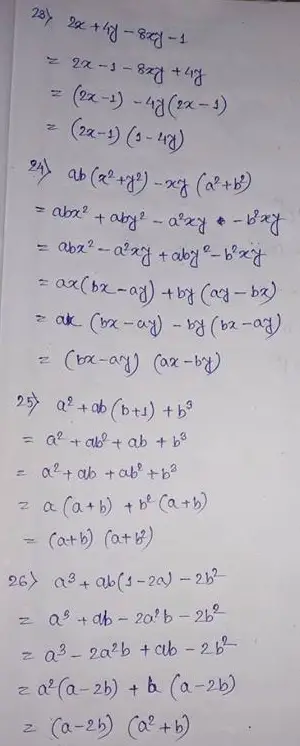 23) 2x + 4y - 8xy - 1
= 2x - 1 - 8xy + 4y
= (2x-1) - 4y (2x-1)
= (2x-1) (1-4y)
24) ab (x² + y²) - xy (a² + b²)
= abx² + aby² - a²xy - b²xy
= abx² - a²xy + aby² - b²xy
= ax (bx - ay) + by (ay - bx)
= ax (bx - ay) - by (bx - ay)
= (bx - ay) (ax - by)
25) a² + ab (b+1) + b³
= a² + ab² + ab + b³
= a² + ab + ab² + b³
= a (a+b) + b² (a+b)
= (a+b) (a+b²)
26) a³ + ab (1-2a) - 2b²
= a³ + ab - 2a²b - 2b²
= a³ - 2a²b + ab - 2b²
= a² (a-2b) + b (a-2b)
= (a-2b) (a²+b)